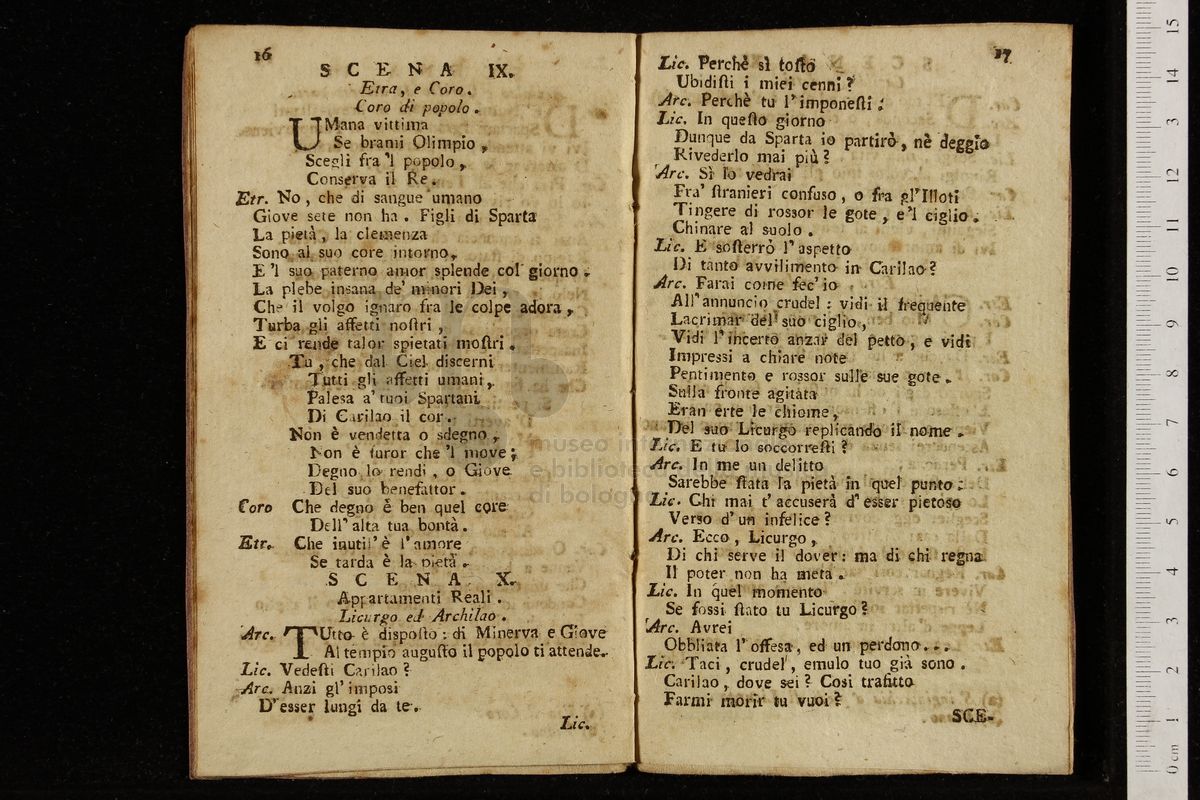 16
SCENA IX.
Etra, e Coro.
Coro di popolo.
UMana vittima
Se brami Olimpio,
Scegli fra 'l popolo,
Conserva il Re.
Etr. No, che di sangue umano
Giove sete non ha. Figli di Sparta
La pietà, la clemenza
Sono al suo core intorno,
E 'l suo paterno amor splende col giorno.
La plebe insana de' minori Dei,
Che il volgo ignaro fra le colpe adora,
Turba gli affetti noſtri,
E ci rende talor spietati moſtri.
Tu, che dal Ciel discerni
Tutti gli affetti umani,
Palesa a' tuoi Spartani
Di Carilao il cor.
Non è vendetta o sdegno,
Non è furor che 'l move;
Degno lo rendi, o Giove
Del suo benefattor.
Coro Che degno è ben quel core
Dell' alta tua bontà.
Etr. Che inutil' è l'amore
Se tarda è la pietà.
SCENA X.
Appartamenti Reali.
Licurgo ed Archilao.
Arc. TUtto è dispoſto: di Minerva e Giove
Al tempio auguſto il popolo ti attende.
Lic. Vedeſti Carilao?
Arc. Anzi gl' imposi
D' esser lungi da te.
Lic.
17
Lic. Perchè sì toſto
Ubidiſti i miei cenni?
Arc. Perchè tu l' imponeſti.
Lic. In queſto giorno
Dunque da Sparta io partirò, nè deggio
Rivederlo mai più?
Arc. Sì lo vedrai
Fra' ſtranieri confuso, o fra gl' Illoti
Tingere di rossor le gote, e 'l ciglio
Chinare al suolo.
Lic. E soſterrò l' aspetto
Di tanto avvilimento in Carilao?
Arc. Farai come fec' io
All' annuncio crudel: vidi il frequente
Lacrimar del suo ciglio,
Vidi l' incerto anzar del petto, e vidi
Impressi a chiare note
Pentimento e rossor sulle sue gote.
Sulla fronte agitata
Eran erte le chiome,
Del suo Licurgo replicando il nome.
Lic. E tu lo soccorreſti?
Arc. In me un delitto
Sarebbe ſtata la pietà in quel punto.
Lic. Chi mai t' accuserà d' esser pietoso
Verso d' un infelice?
Arc. Ecco, Licurgo,
Di chi serve il dover: ma di chi regna
Il poter non ha meta.
Lic. In quel momento
Se fossi ſtato tu Licurgo?
Arc. Avrei
Obbliata l' offesa, ed un perdono...
Lic. Taci, crudel, emulo tuo già sono.
Carilao, dove sei? Così trafitto
Farmi morir tu vuoi?
SCE-
museo
e biblioteca
di bologna